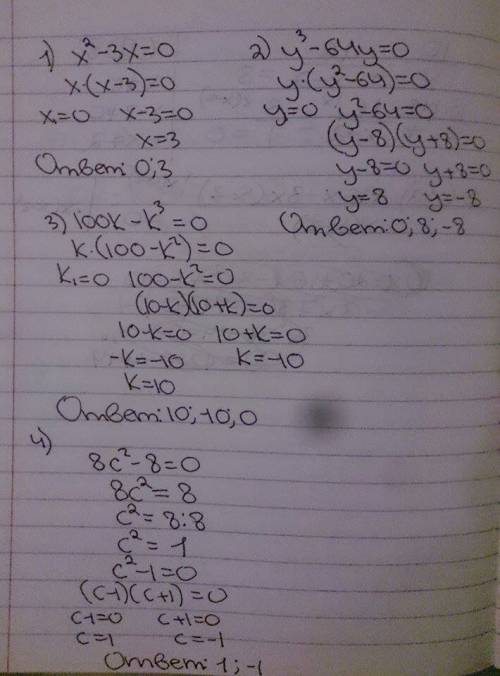 1) x²-3x=0
x·(x-3)=0
x=0 x-3=0
x=3
Ответ: 0;3
2) y³-64y=0
y·(y²-64)=0
y=0 y²-64=0
(y-8)(y+8)=0
y-8=0 y+8=0
y=8 y=-8
Ответ: 0; 8; -8
3) 100k-k³=0
k·(100-k²)=0
k₁=0 100-k²=0
(10-k)(10+k)=0
10-k=0 10+k=0
-k=-10 k=-10
k=10
Ответ: 10; -10; 0
4)
8c²-8=0
8c²=8
c²=8:8
c²=1
c²-1=0
(c-1)(c+1)=0
c-1=0 c+1=0
c=1 c=-1
Ответ: 1; -1